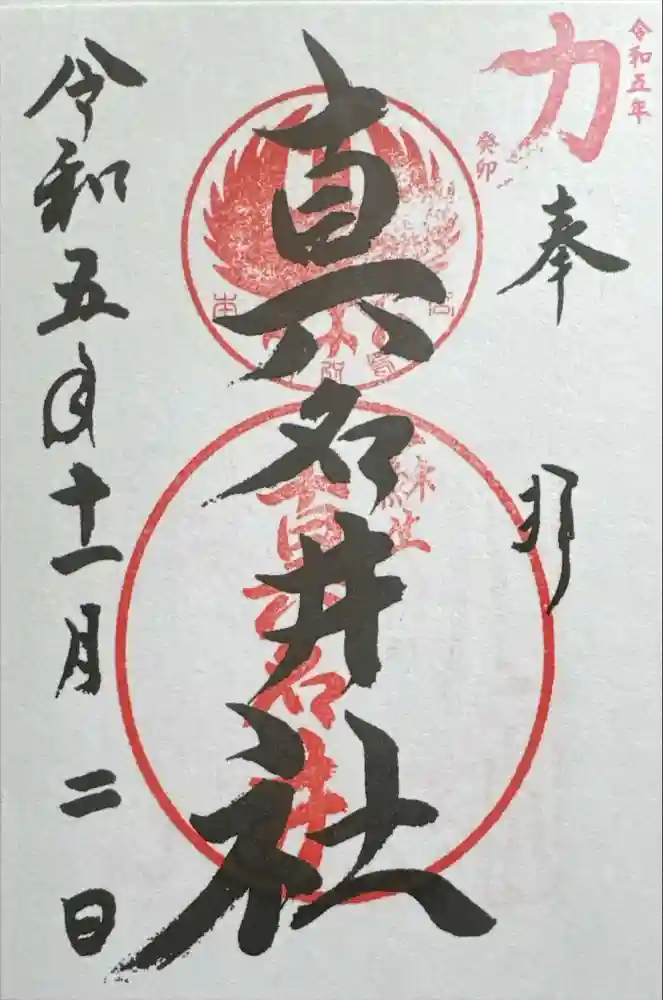 令和五年
癸卯
力
奉拝
真名井社
末社
真名井
令和五年十一月二日